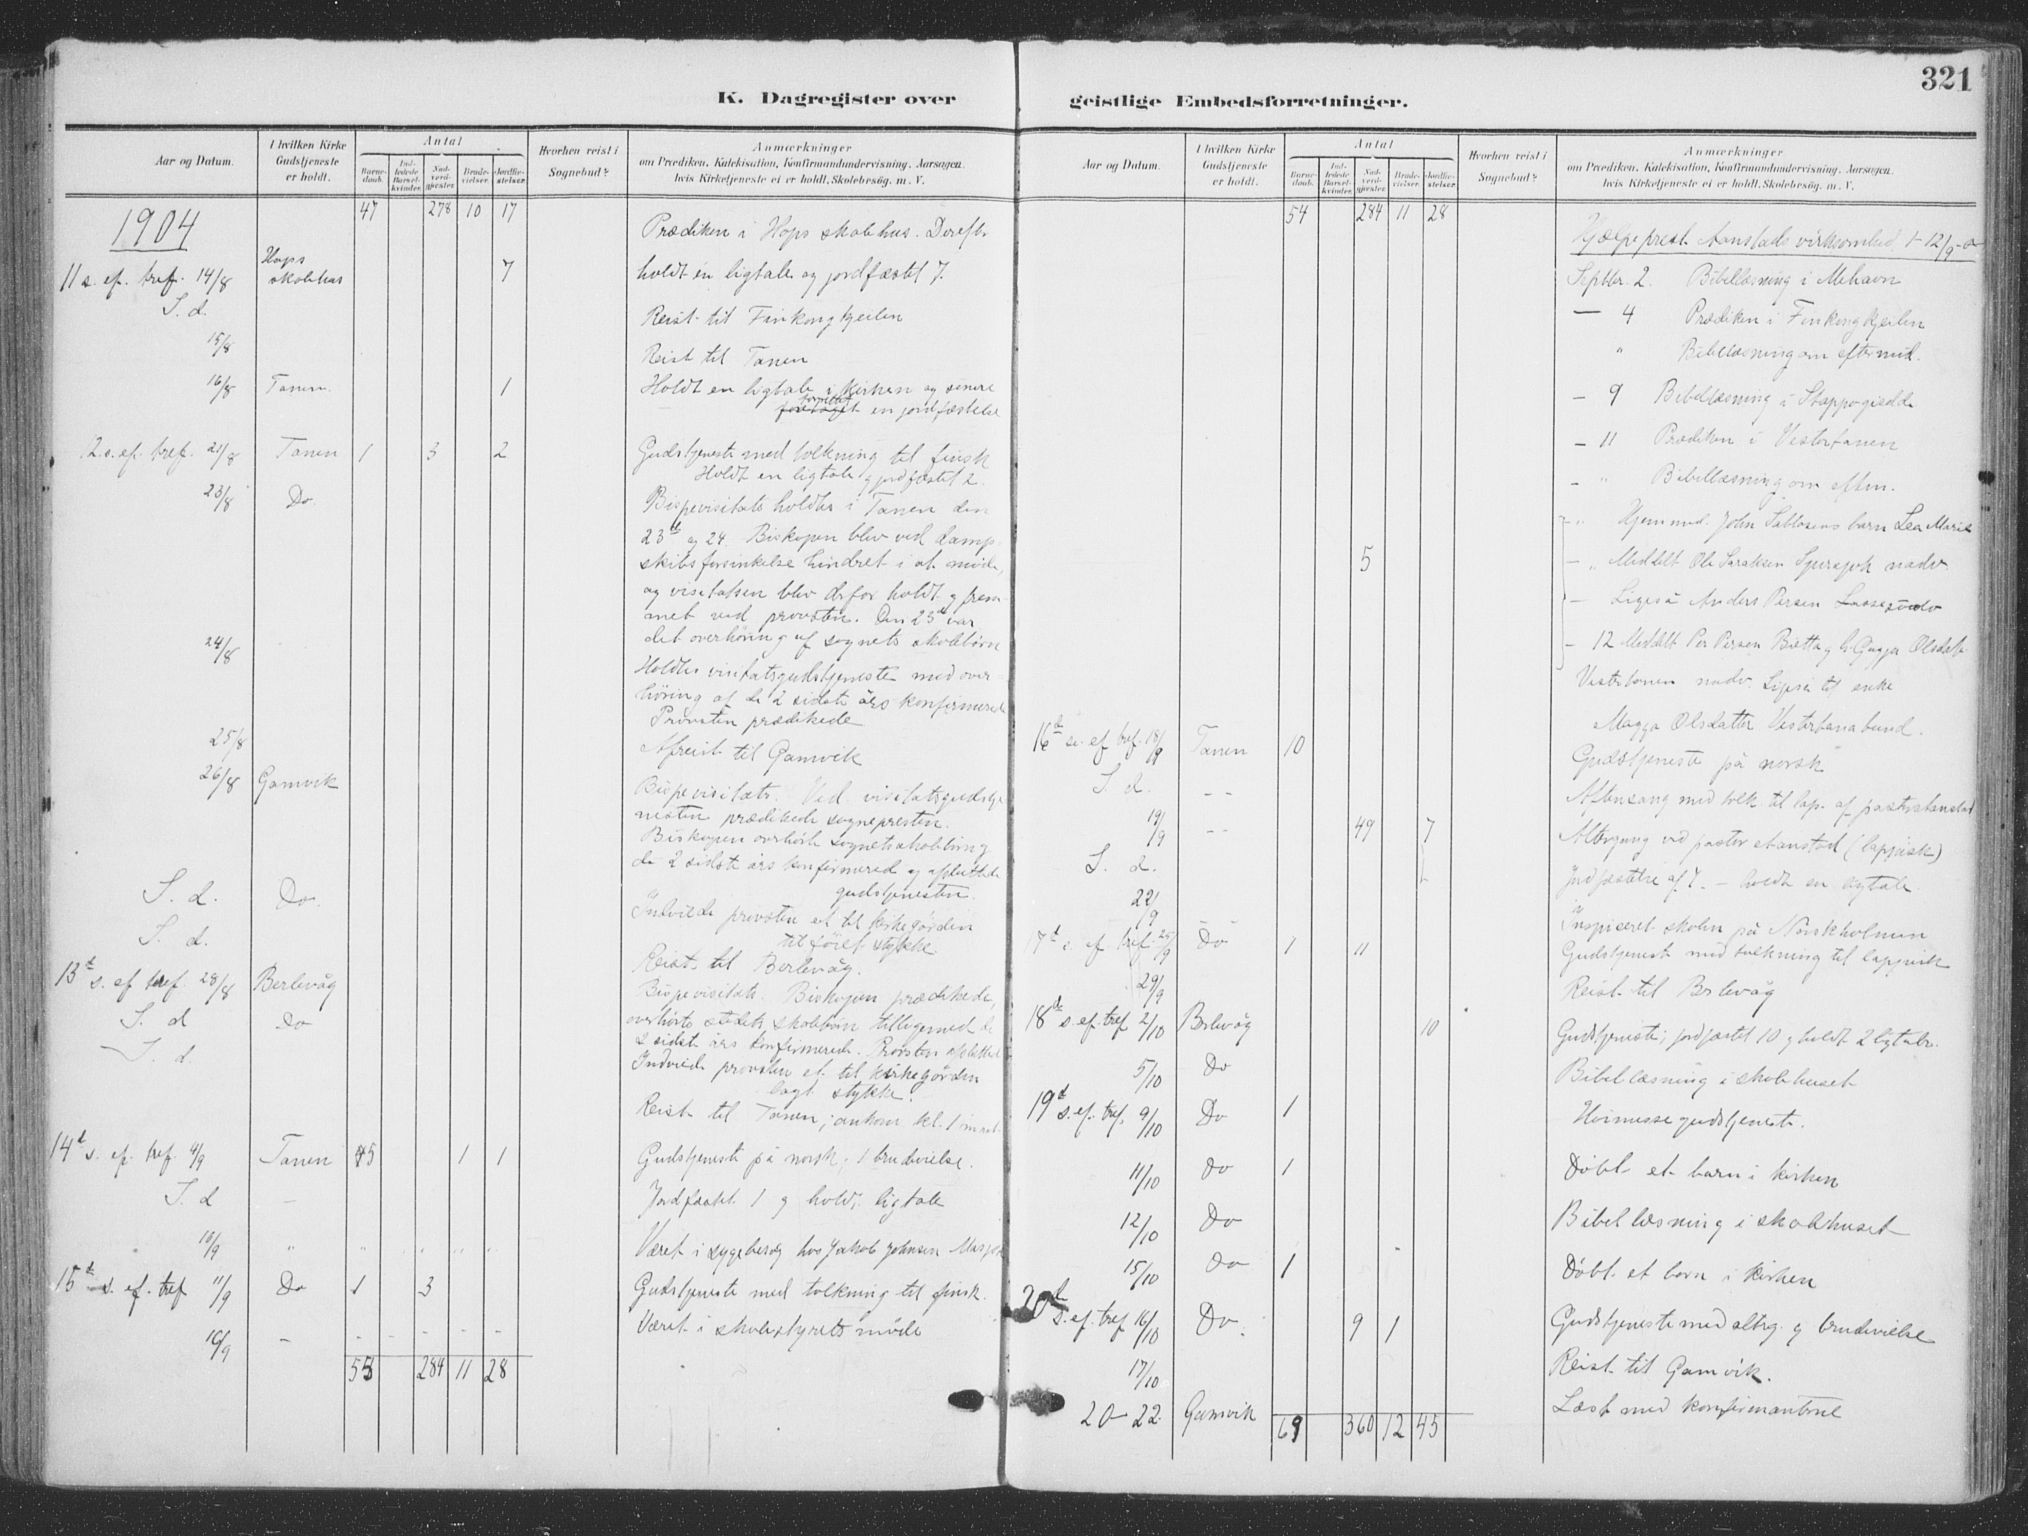 321
K. Dagregister over geistlige Embedsforretninger.
Aar og Datum.
I hvilken Kirke Gudstjeneste er holdt.
Antal
Barnedaab.
Indledede Barselkvinder.
Nadverdgjester
Brudevielser.
Jordfæstelser.
Hvorhen reist i Sognebud?
Anmærkninger
om Prædiken, Katekisation, Konfirmandundervisning, Aarsagen,
hvis Kirketjeneste ei er holdt, Skolebesøg, m. V.
1904
47 278 10 17
Prædiken i Hops skolehus. Derefter
11 s. ef. tref. 14/8 Hops skolehus 7 holdt én ligtale og jordfæstet 7.
S. d. Reist til Finkongkjeilen
15/8 Reist til Tanen
16/8 Tanen. 1 Holdt en ligtale i kirken og senere
forrettet
foretaget en jordfæstelse
12. s. ef. tref. 21/8 Tanen 1 3 2 Gudstjeneste med tolkning til finsk
Holdt en ligtale g jordfæstet 2.
23/8 Do. Bispevisitats holdtes i Tanen den
23de og 24. Biskopen blev ved damp-
skibsforsinkelse hindret i at møde,
og visitatsen blev derfor holdt g frem-
met ved provsten. Den 23de var
det overhøring af sognets skolebørn
24/8 Holdtes visitatsgudstjeneste med over-
høring af de 2 sidste års konfirmerede
Provsten prædikede
25/8 Afreist til Gamvik
26/8 Gamvik Bispevisitats. Ved visitatsgudstje
nesten prædikede sognepresten.
Biskopen overhørte sognets skolebørn g
de 2 sidste års konfirmerede og afsluttede
gudstjenesten.
S. d. Do. Indviede provsten et til kirkegården
tilføiet stykke
S. d. Reist til Berlevåg.
13de s. ef tref 28/8 Berlevåg Bispevisitats. Biskopen prædikede,
S. d Do overhørte stedets skolebørn tilligemed de
2 sidste års konfirmerede. Provsten afsluttede
S. d. Indviede provsten et til kirkegården
lagt stykke.
Reist til Tanen; ankom kl. 1 in nat
14de s. ef. tref. 4/9 Tanen 45 1 1 Gudstjeneste på norsk; 1 brudevielse.
S. d — Jordfæstet 1 g holdt ligtale
10/9 Været i sygebesøg hos Jakob Johnsen Masjok
15de s. ef. tref 11/9 Do 1 3 Gudstjeneste med tolkning til finsk.
16/9 — Været i skolestyrets møde
284 11 28
Aar og Datum.
I hvilken Kirke Gudstjeneste er holdt.
Antal
Barnedaab.
Indledede Barselkvinder.
Nadverdgjester
Brudevielser.
Jordfæstelser.
Hvorhen reist i Sognebud?
Anmærkninger
om Prædiken, Katekisation, Konfirmandundervisning, Aarsagen,
hvis Kirketjeneste ei er holdt, Skolebesøg, m. V.
54 284 11 28
Hjælpeprest Aanstads virksomhed 1–12/9
Septbr. 2. Bibellæsning i Mehavn
— 4 Prædiken i Finkongkjeilen
" Bibellæsning om eftermid.
— 9 Bibellæsning i Stappogiedde
— 11 Prædiken i Vestertanen
— " Bibellæsning om aften.
— " Hjemmed. John barn Lea Marie
5 — " Meddelt Ole Saraksen nadv.
— Ligeså Anders Persen
— 12 Meddelt Per Persen Bætta g h. Gagga Olsdatter
Vestertanen nadv. Ligeså til enke
Magga Olsdatter Vestertanabund.
16de s. ef tref. 18/9 Tanen 10 Gudstjeneste på norsk
S. d. — — Aftensang med tolk. til lap. af pastor Aanstad
19/9 — — 49 7 Altergang ved pastor Aanstad (lappisk)
S. d. Jordfæstelse af 7. – holdt en ligtale.
22/9 Inspiceret skolen på Norskholmen
17de s. ef. tref. 25/9 Do 1 11 Gudstjeneste med tolkning til lappisk
29/9 Reist til Berlevåg
18de s. ef. tref 2/10 Berlevåg 10 Gudstjeneste; jordfæstet 10 g holdt 2 ligtaler.
5/10 Do Bibellæsning i skolehuset
19de s. ef. tref. 9/10 Do 1 Høimessegudstjeneste.
11/10 Do 1 Døbt et barn i kirken
12/10 Do Bibellæsning i skolehuset
15/10 Do 1 Døbt et barn i kirken
20de s. ef. tref 16/10 Do. 9 1 Gudstjeneste med alterg. g brudevielse
17/10 Reist til Gamvik.
20–22. Gamvik Læst med konfirmanterne
69 360 12 45